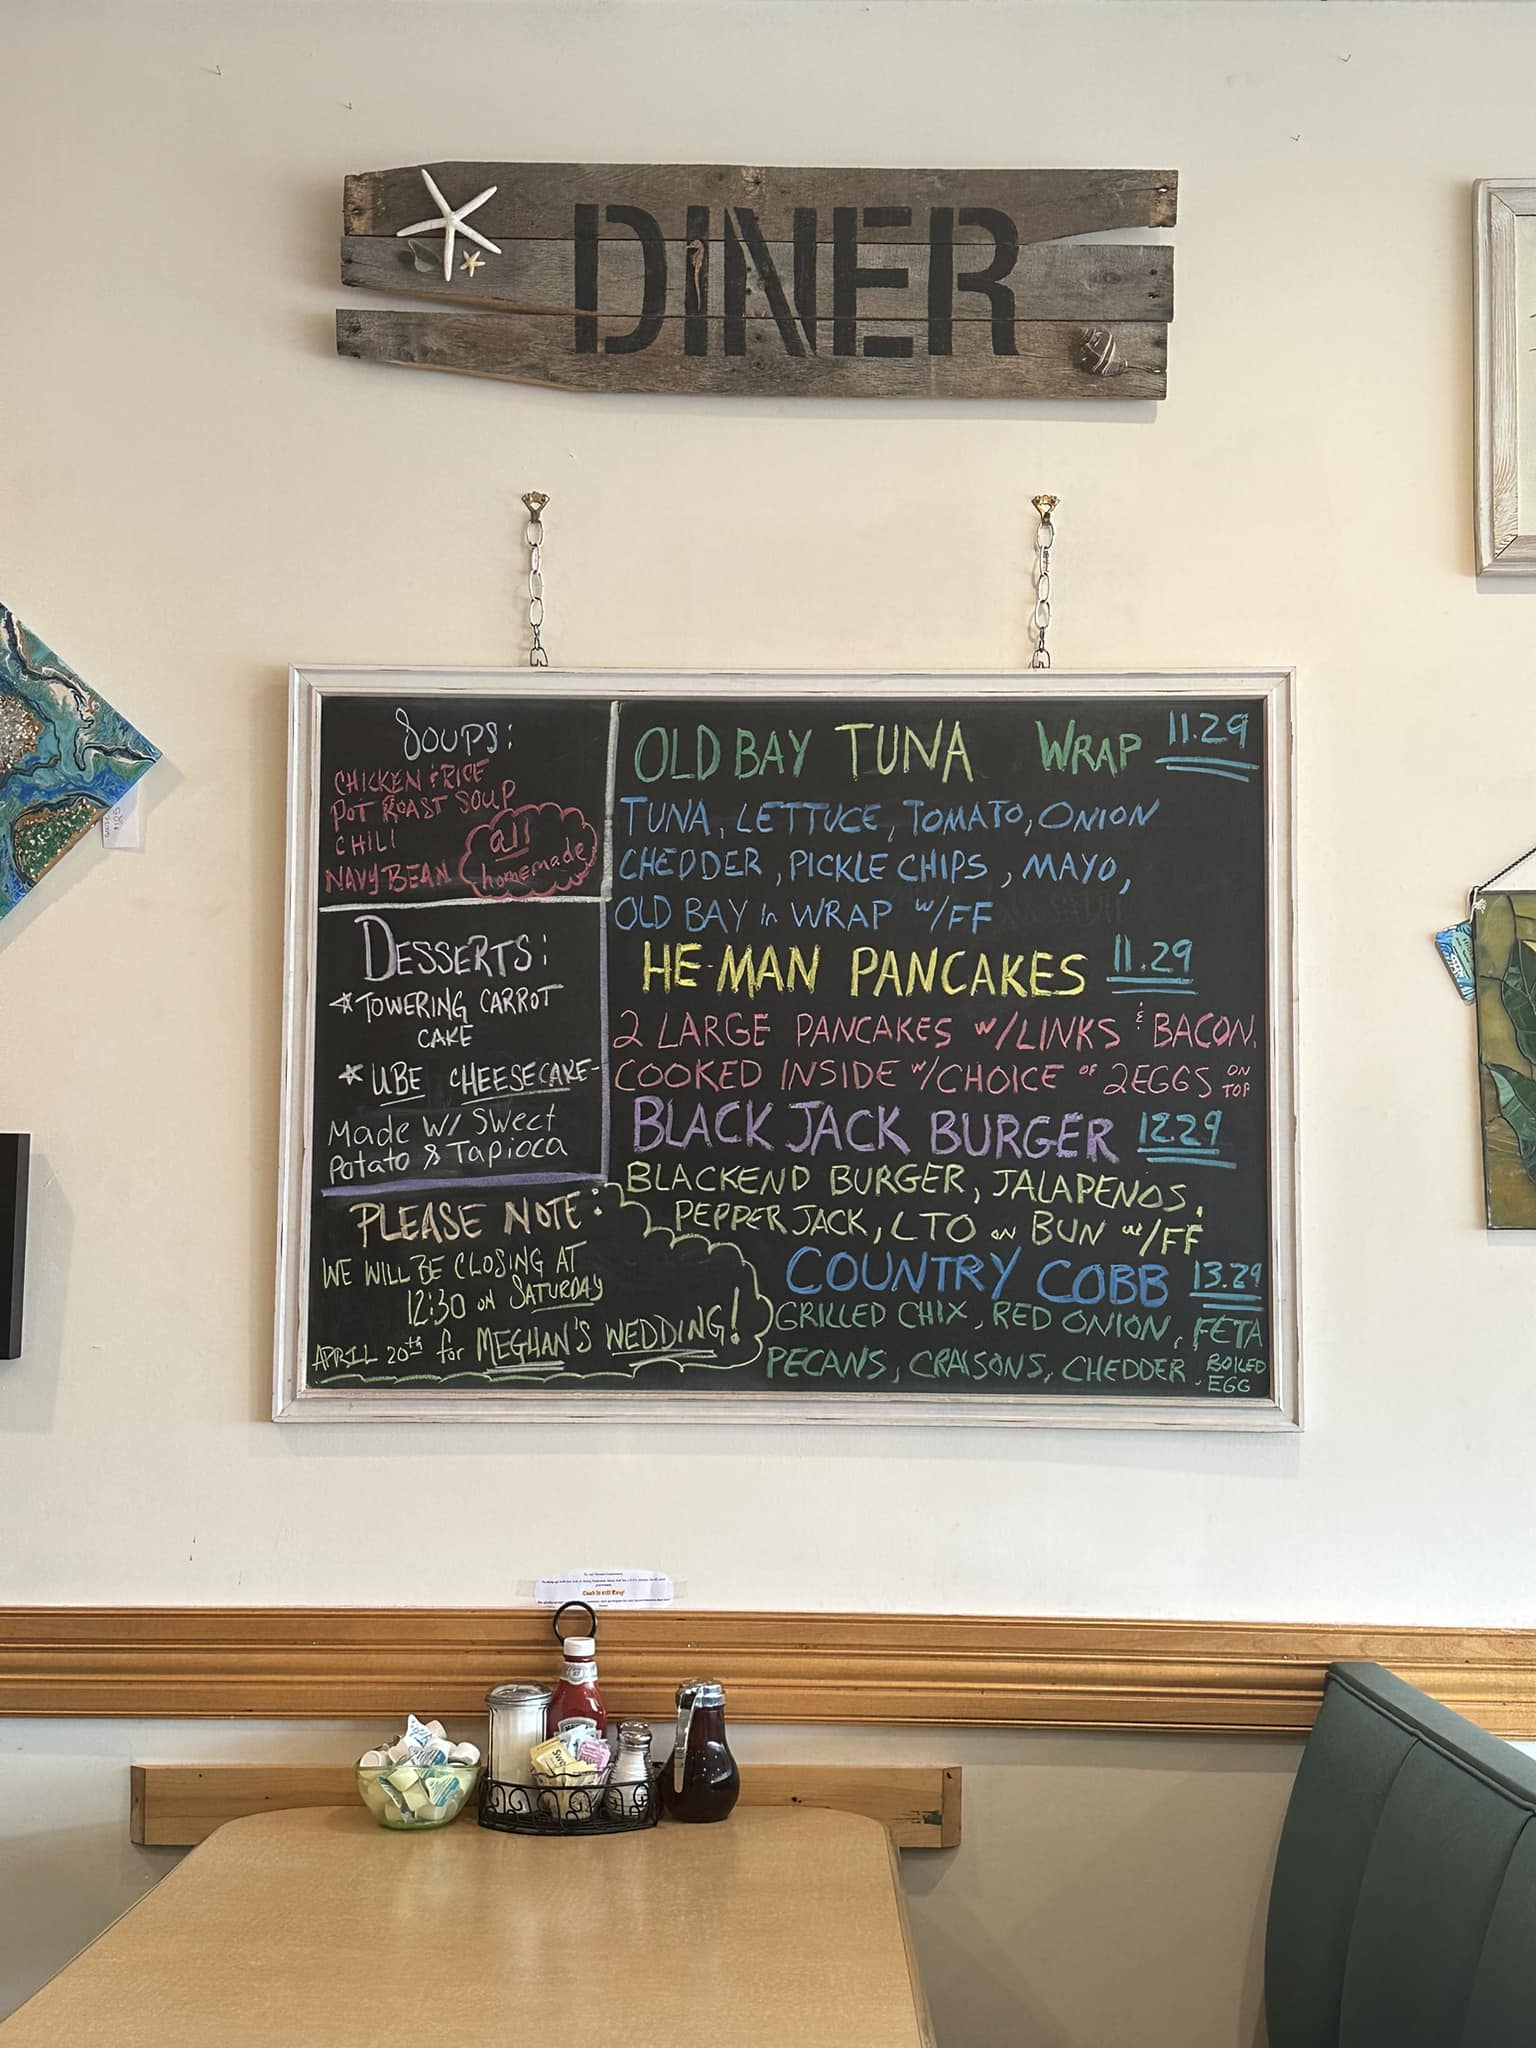 DINER
SOUPS:
CHICKEN & RICE
POT ROAST SOUP
CHILI
NAVY BEAN
all
homemade
DESSERTS:
*TOWERING CARROT
CAKE
*UBE CHEESECAKE-
Made W/ Sweet
Potato & Tapioca
PLEASE NOTE:
WE WILL BE CLOSING AT
12:30 ON SATURDAY
APRIL 20th for MEGHAN'S WEDDING!
OLD BAY TUNA WRAP 11.29
TUNA, LETTUCE, TOMATO, ONION
CHEDDER, PICKLE CHIPS, MAYO,
OLD BAY in WRAP w/FF
HE-MAN PANCAKES 11.29
2 LARGE PANCAKES w/LINKS & BACON.
COOKED INSIDE w/CHOICE OF 2EGGS ON TOP
BLACK JACK BURGER 12.29
BLACKEND BURGER, JALAPENOS,
PEPPER JACK, LTO ON BUN w/FF
COUNTRY COBB 13.29
GRILLED CHIX, RED ONION, FETA
PECANS, CRAISONS, CHEDDER. BOILED
EGG
Cash is still King!